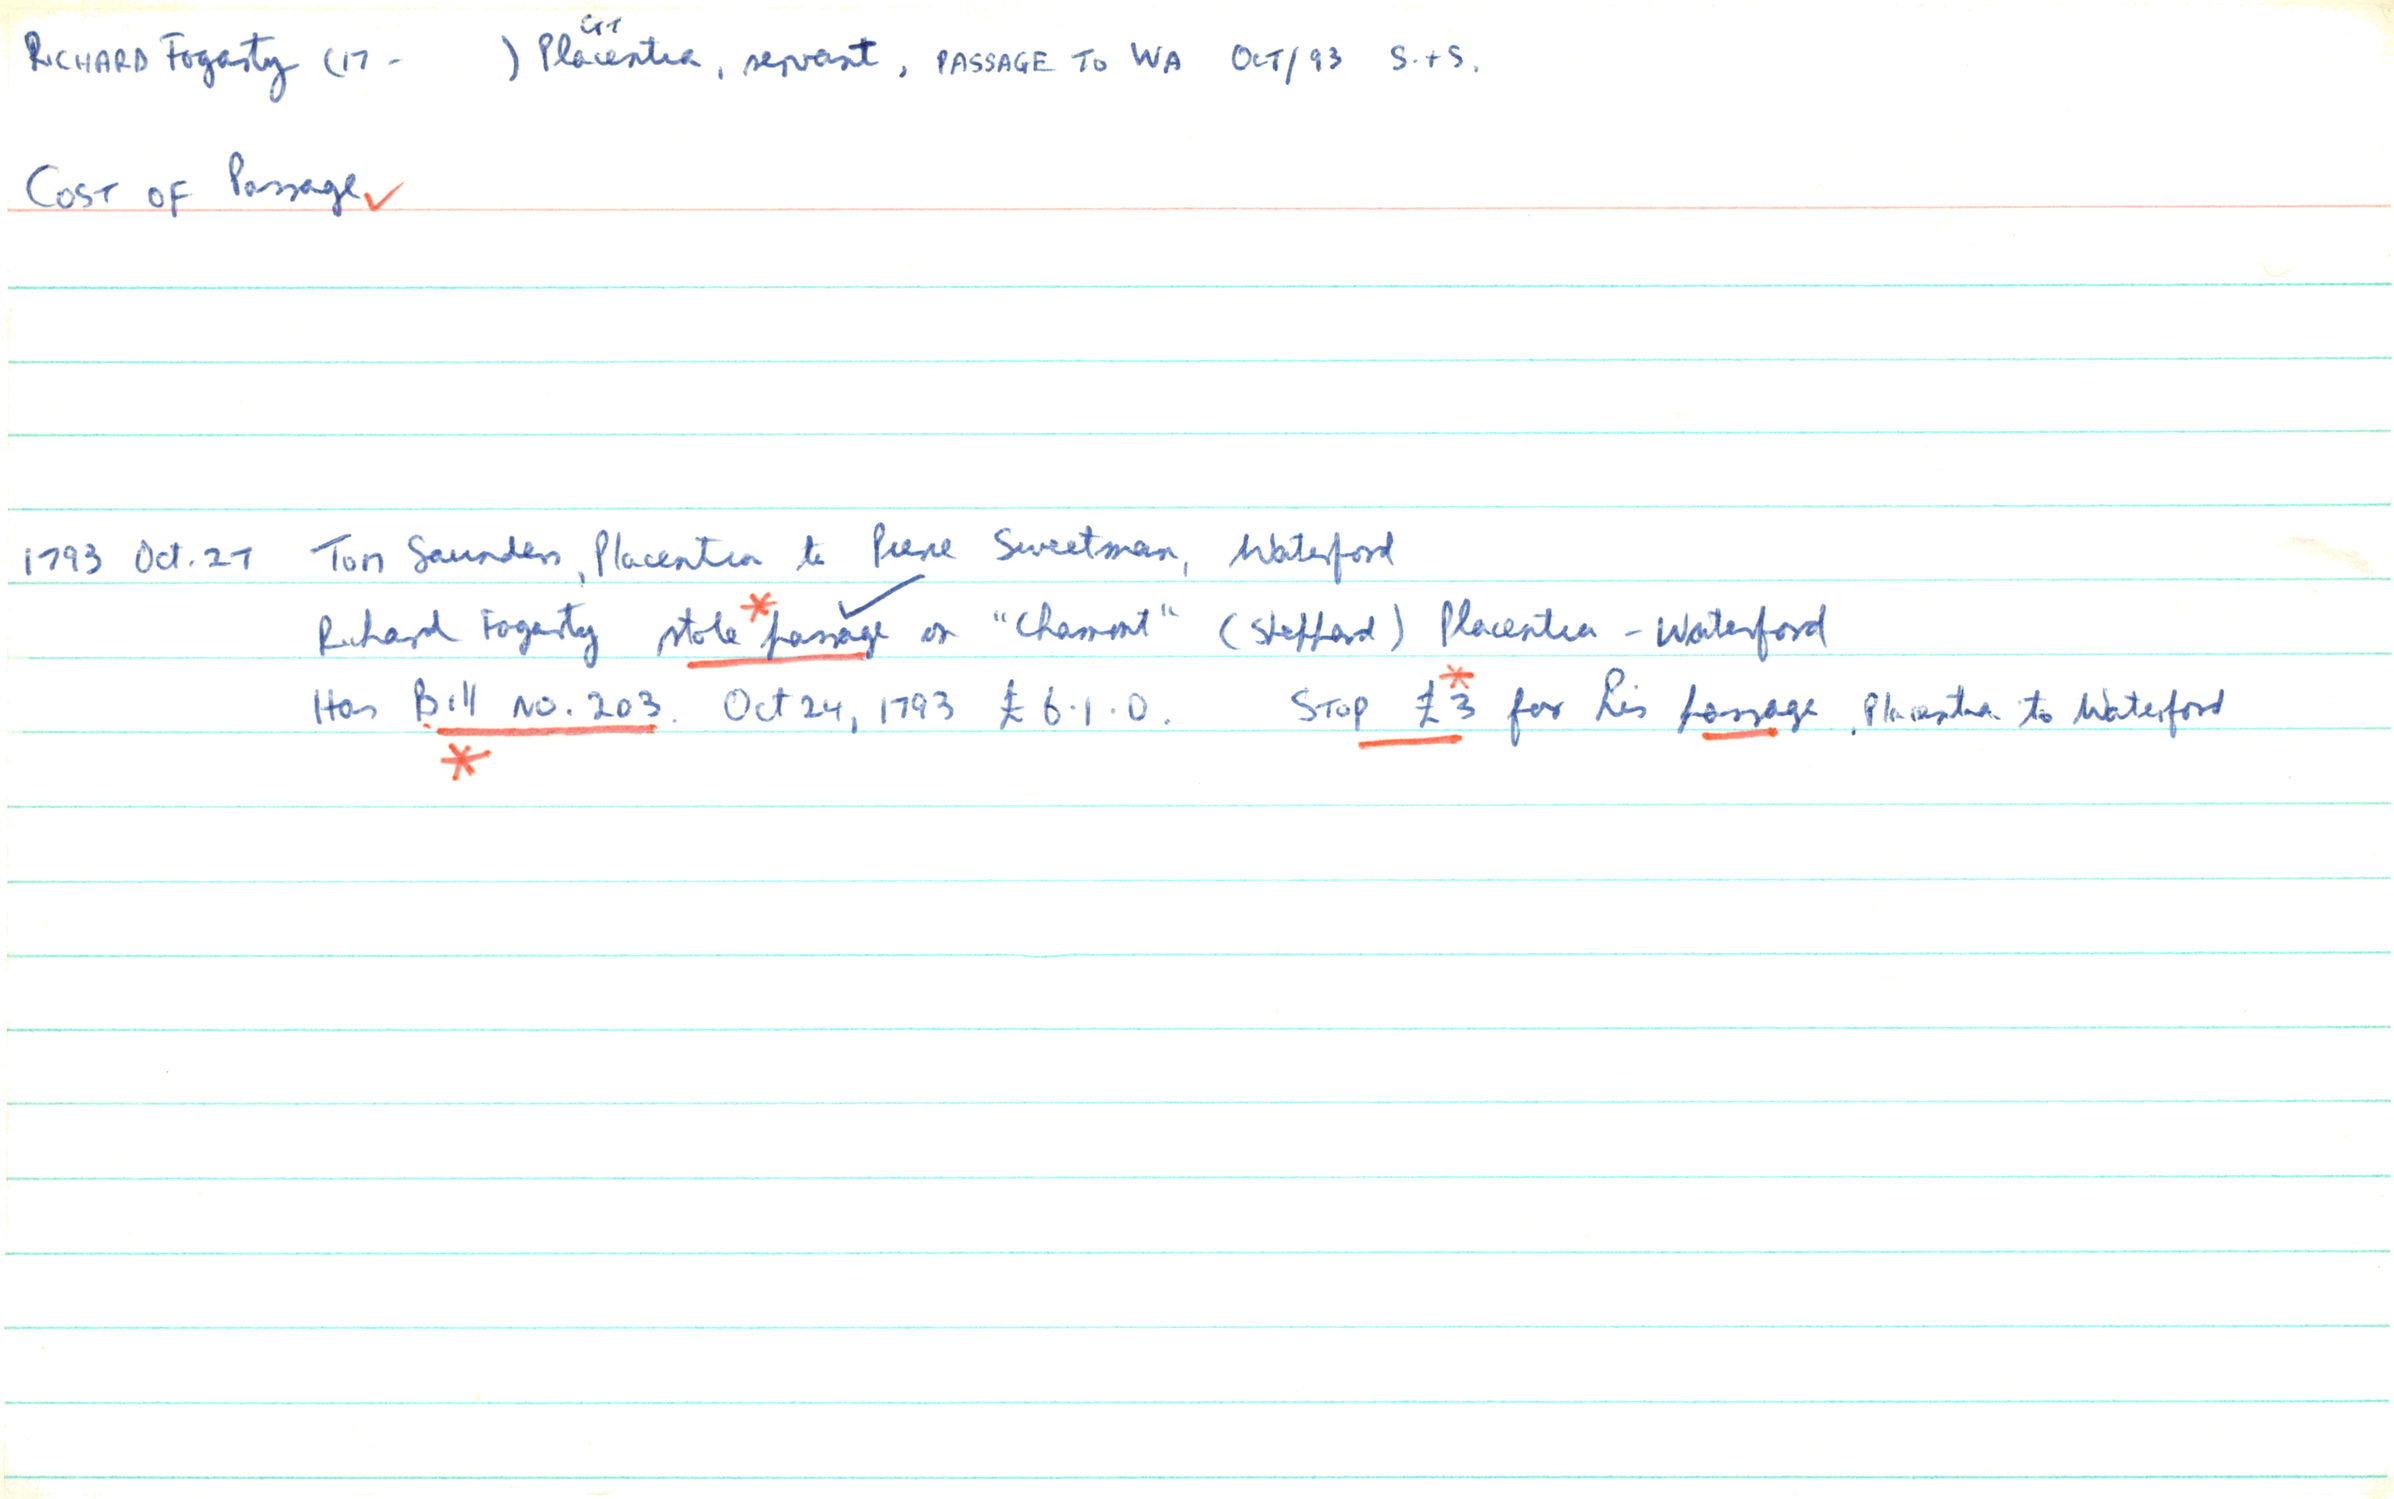 RICHARD Fogarty (17 - ) Placentia, servant, PASSAGE TO WA OCT/93 S.+S.
COST OF Passage
1793 Oct. 27 Tom Saunders, Placentia to Pierce Sweetman, Waterford
Richard Fogarty stole passage on "Chamont" (Steffard) Placentia - Waterford
Has Bill No. 203. Oct 24, 1793 £6.1.0. STOP £3 for his passage, Placentia to Waterford